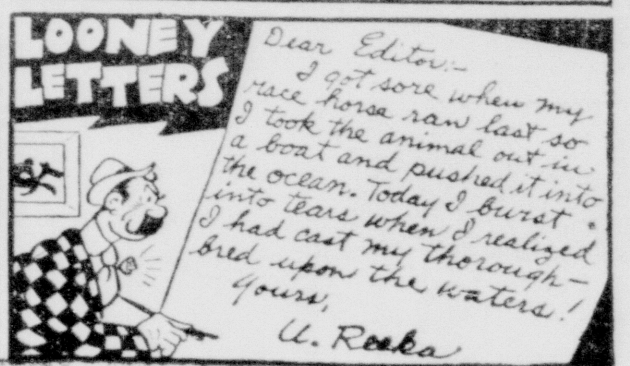 LOONEY
LETTERS
Dear Editor:-
I got sore when my
race horse ran last so
I took the animal out in
a boat and pushed it into
the ocean. Today I burst
into tears when I realized
I had cast my thorough-
bred upon the waters!
Yours,
U. Reeka